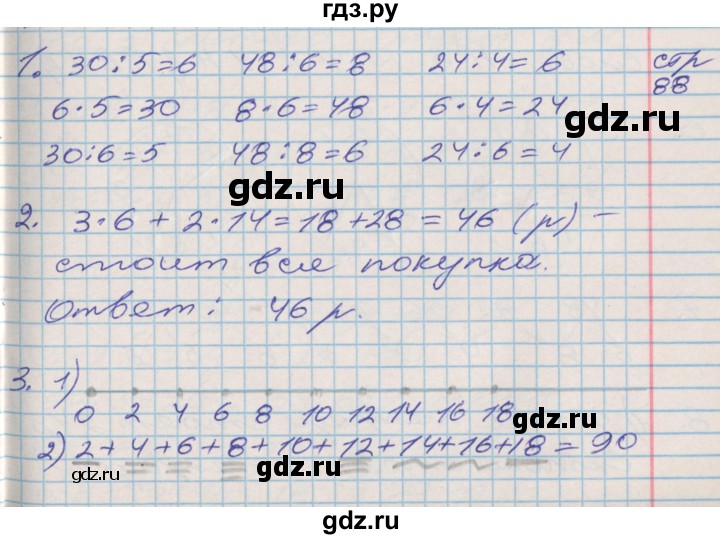 гдз.ру
1. 30:5=6 48:6=8 24:4=6 стр
6·5=30 8·6=48 6·4=24 88
gdz.ru
30:6=5 48:8=6 24:6=4
gdz.ru
2. 3·6+2·14=18+28=46 (р) –
стоит вся покупка.
Ответ: 46 р.
gdz.ru
3. 1)
0 2 4 6 8 10 12 14 16 18
gdz.ru
2) 2+4+6+8+10+12+14+16+18=90
gdz.ru
gdz.ru